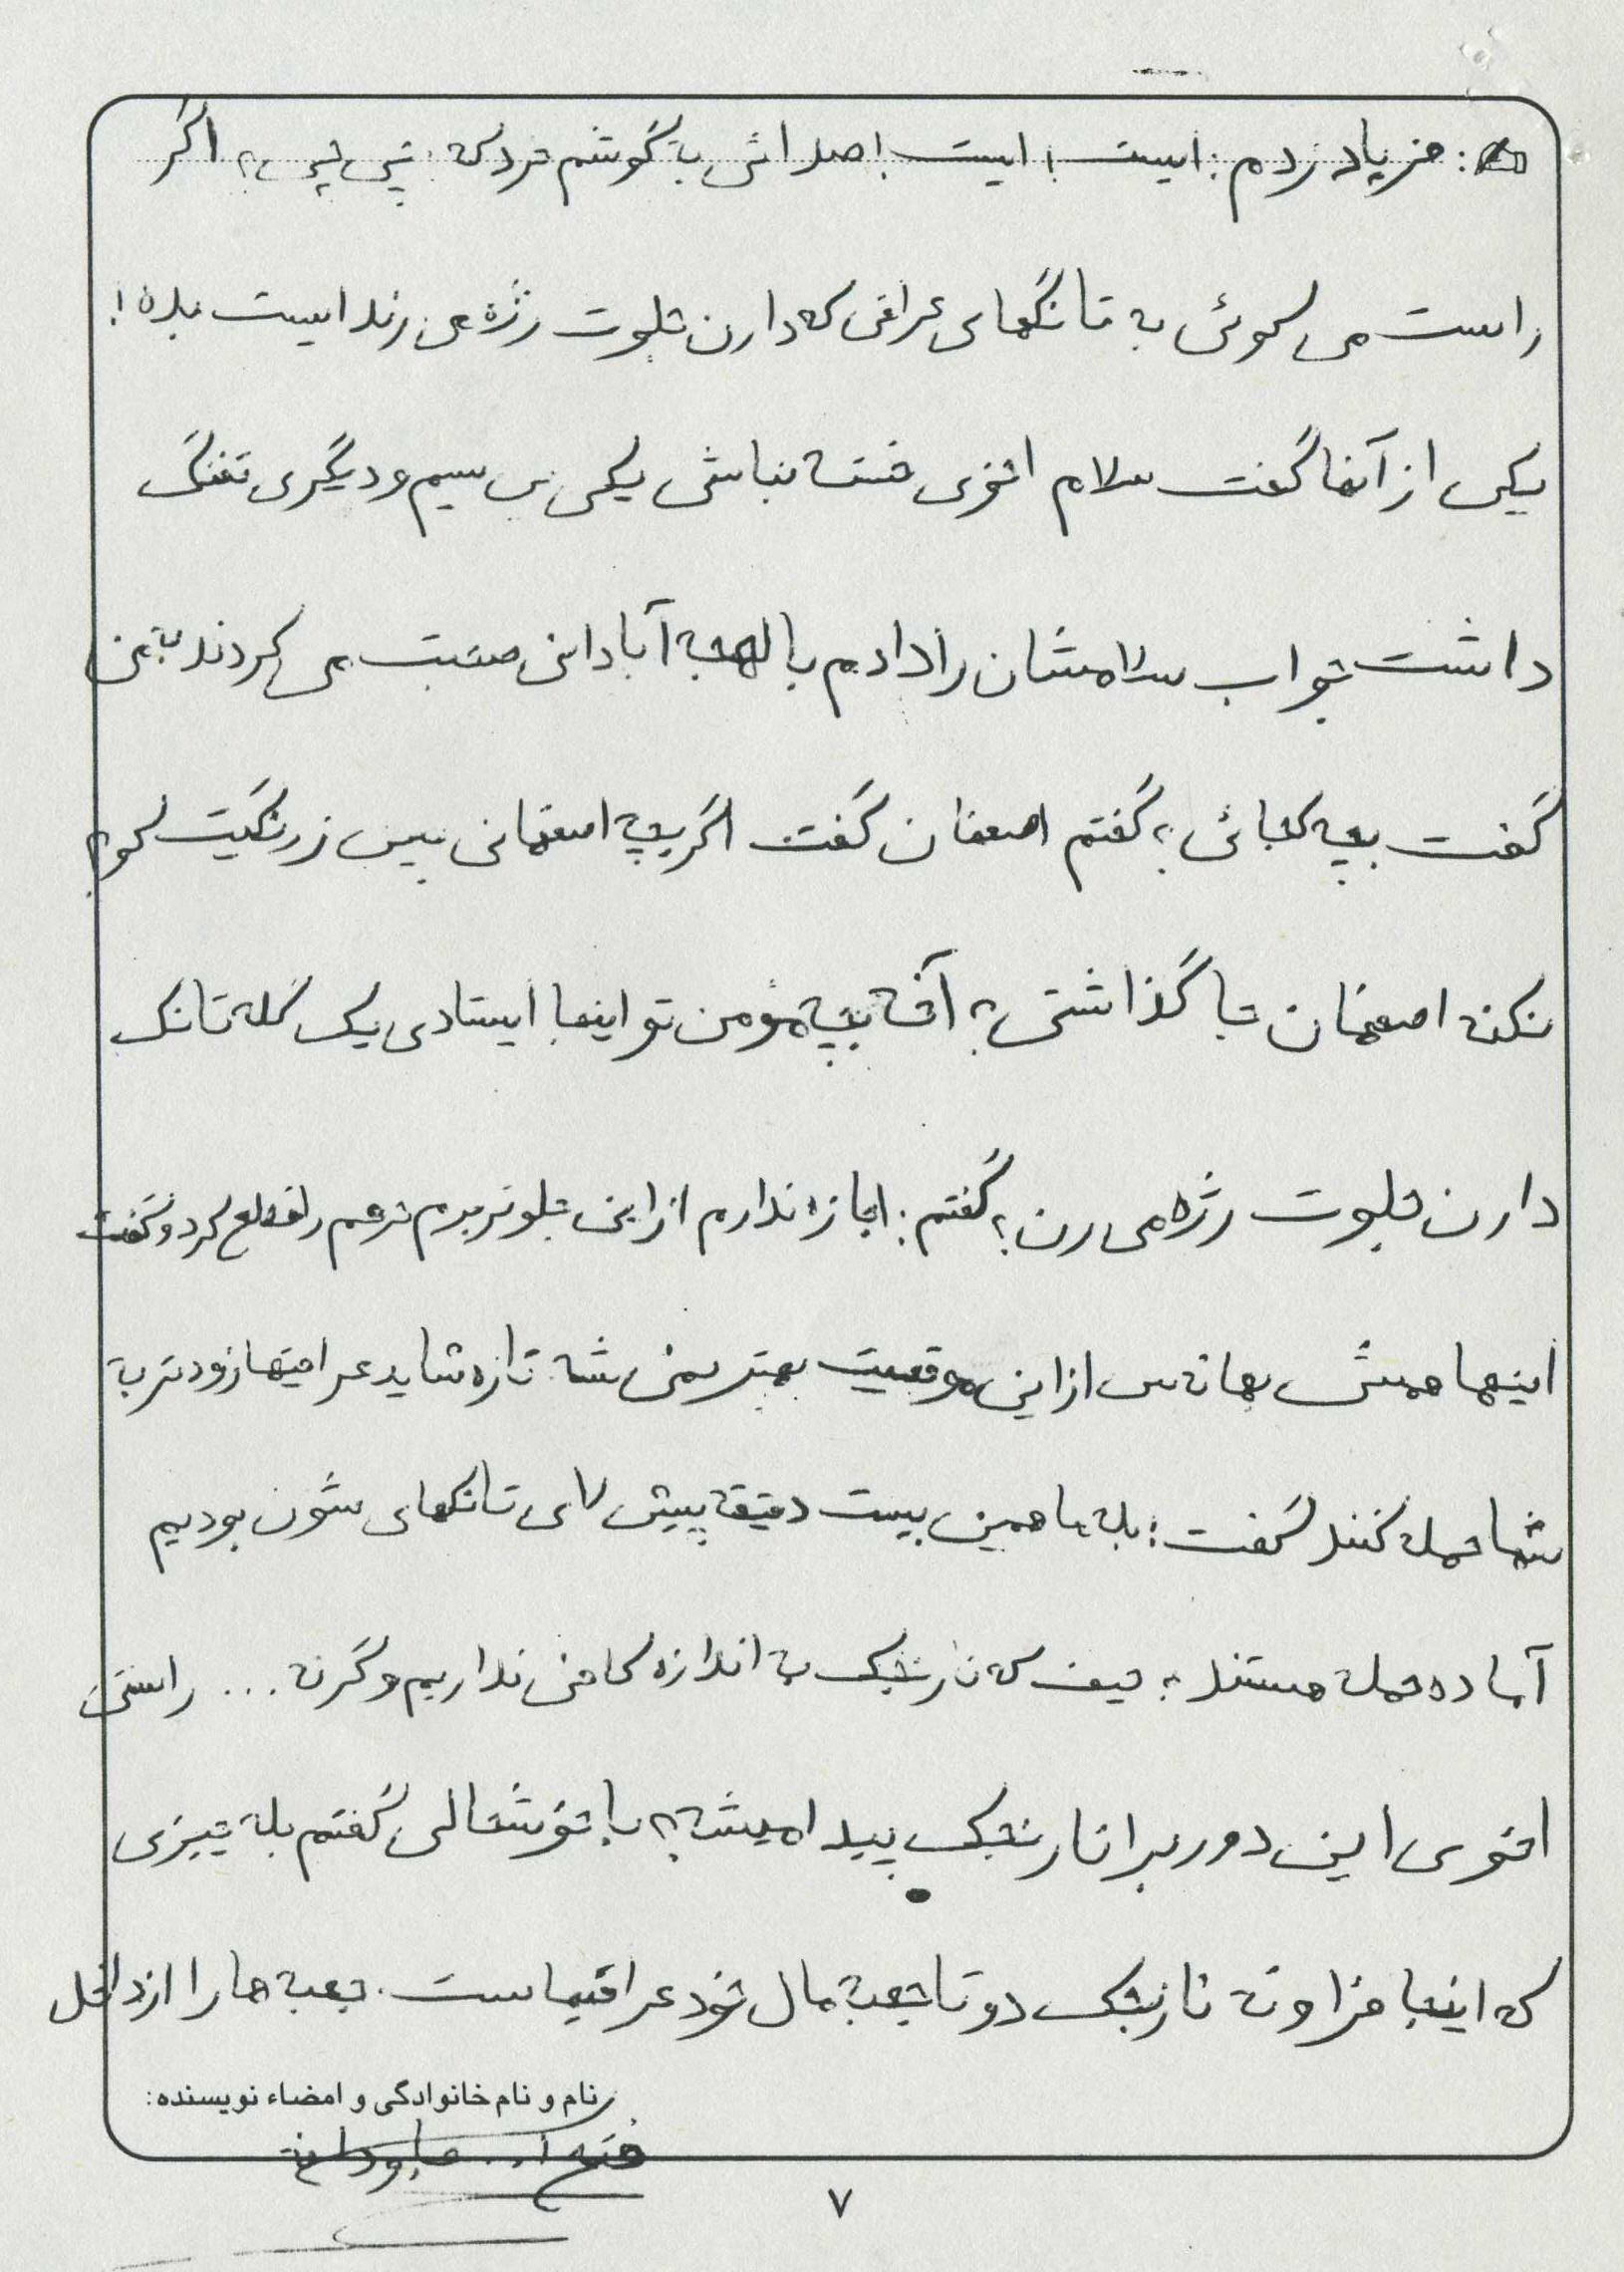 : فریاد زدم : ایست ! ایست ! صدائی به گوشم خرد که : چی چی ؟ اگر
راست می گوئی به تانگهای عراقی که دارن جلوت رژه می زند ایست بده !
یکی از آنها گفت سلام اخوی خسته نباشی یکی بی سیم و دیگری تفنگ
داشت جواب سلامشان را دادم با لهجه آبادانی صحبت می کردند به من
گفت بچه کجائی ؟ گفتم اصفهان گفت اگر بچه اصفهانی پس زرنگیت کو ؟
نکنه اصفهان جا گذاشتی ؟ آخه بچه مؤمن تو اینجا ایستادی یک گله تانک
دارن جلوت رژه می رن ؟ گفتم : اجازه ندارم از این جلوتر برم حرفم را قطع کرد و گفت
اینها همش بهانه س از این موقعیت بهتر نمی شه . تازه شاید عراقیها زودتر به
شما حمله کنند گفت : بله ما همین بیست دقیقه پیش لای تانکهای شون بودیم
آماده حمله هستند ؟ حیف که نارنجک به اندازه کافی نداریم وگرنه ... راستی
اخوی این دور برا نارنجک پیدا میشه ؟ با خوشحالی گفتم بله چیزی
که اینجا فراونه نارنجک دو تا جعبه مال خود عراقیهاست . جعبه ها را از داخل
نام و نام خانوادگی و امضاء نویسنده:
فتح ا...
۷